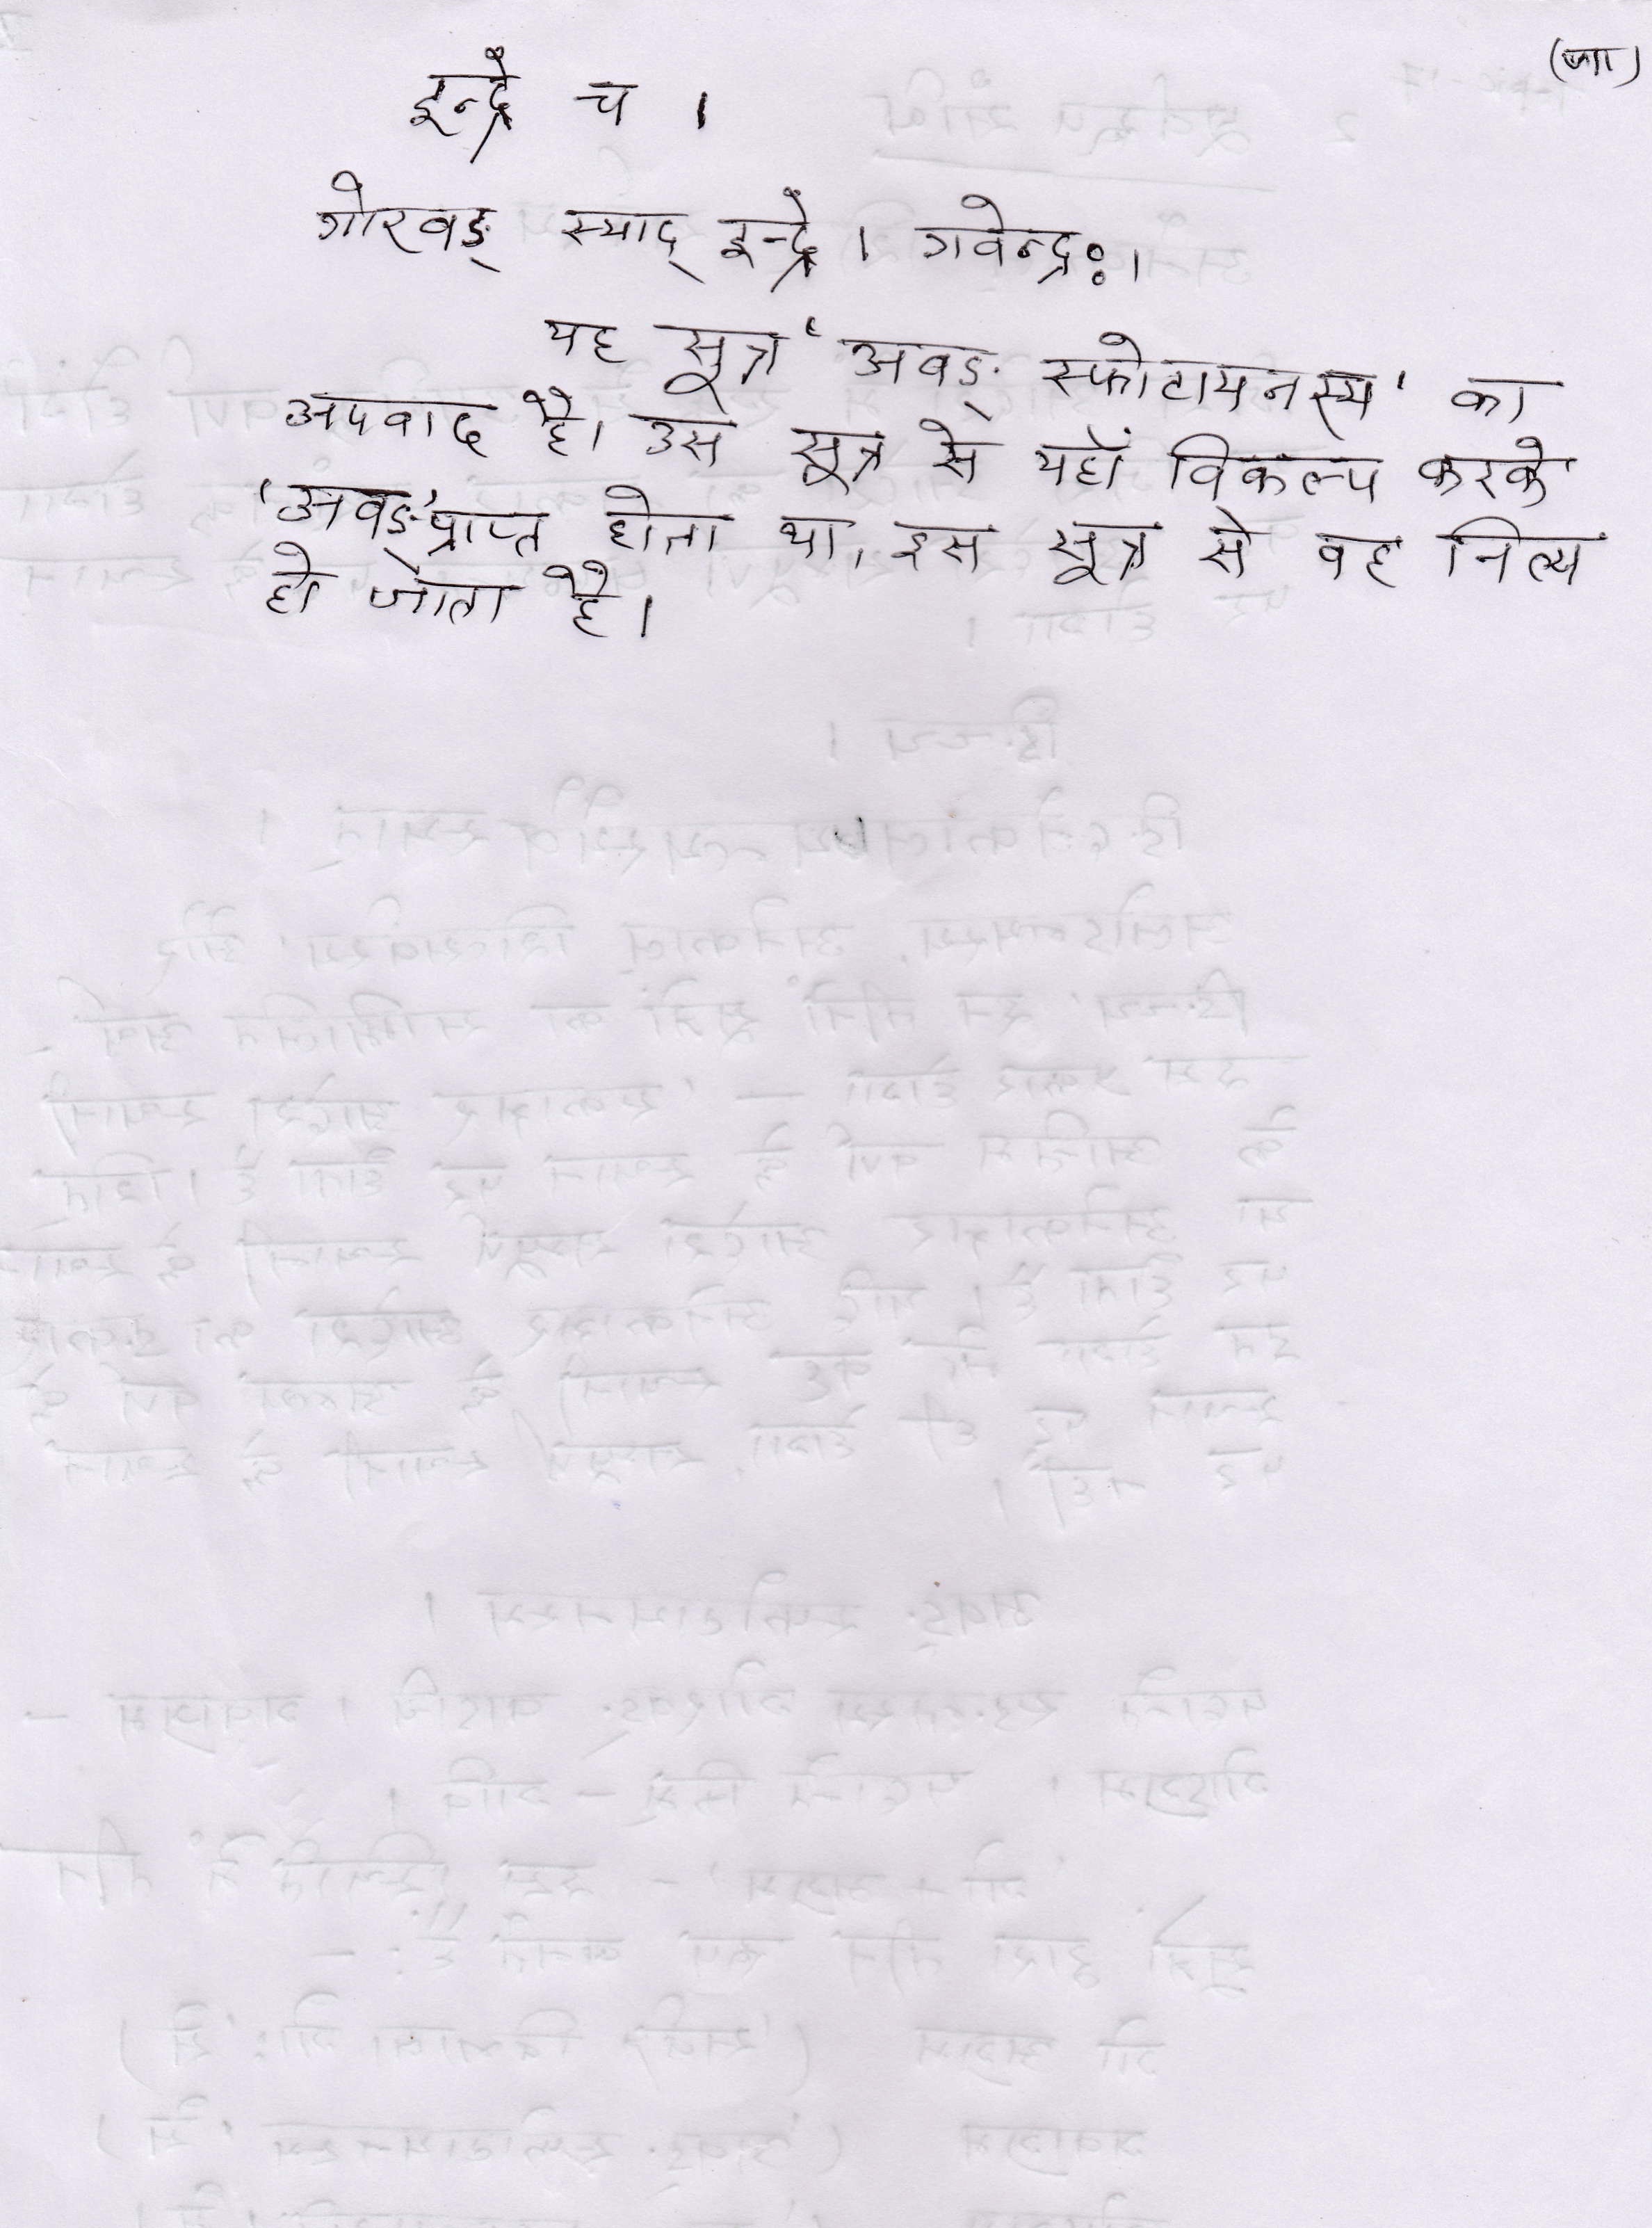 (जा)
इन्द्रे च ।
गोरवङ् स्याद् इन्द्रे । गवेन्द्रः ।
यह सूत्र 'अवङ् स्फोटायनस्य' का
अपवाद है। उस सूत्र से यहाँ विकल्प करके
'अवङ्' प्राप्त होता था, इस सूत्र से वह नित्य
हो जाता है।